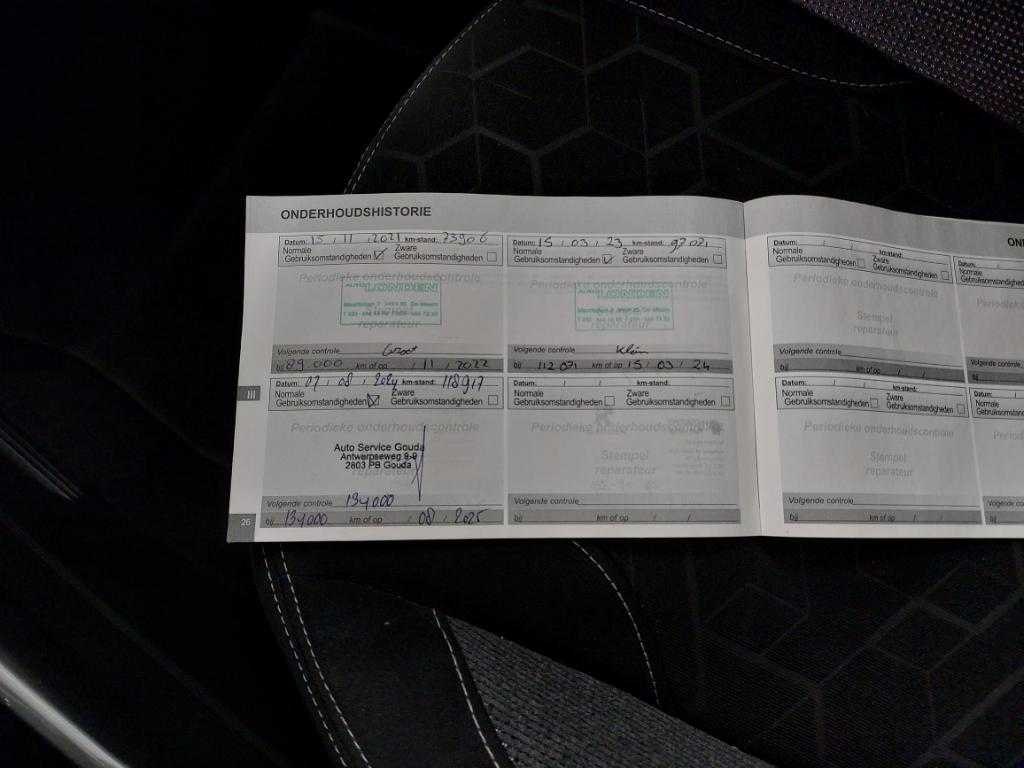 ONDERHOUDSHISTORIE
Datum: 15 / 11 / 2021 km-stand: 73906
Normale
Gebruiksomstandigheden
Zware
Gebruiksomstandigheden
Periodieke onderhoudscontrole
AUTO
LONDEN
reparateur
Volgende controle Groot
bij 89.000 km of op / 11 / 2022
Datum: 15 / 03 / 23 km-stand: 97.071
Normale
Gebruiksomstandigheden
Zware
Gebruiksomstandigheden
Periodieke onderhoudscontrole
AUTO
LONDEN
reparateur
Volgende controle Klein
bij 112.071 km of op 15 / 03 / 24
Datum: 07 / 08 / 2024 km-stand: 118917
Normale
Gebruiksomstandigheden
Zware
Gebruiksomstandigheden
Periodieke onderhoudscontrole
Auto Service Gouda
Antwerpseweg 8-9
2803 PB Gouda
Volgende controle 134000
bij 134000 km of op / 08 / 2025
Datum: / / km-stand:
Normale
Gebruiksomstandigheden
Zware
Gebruiksomstandigheden
Periodieke onderhoudscontrole
Stempel
reparateur
Volgende controle
bij km of op / /
26
III
ON
Datum: / / km-stand:
Normale
Gebruiksomstandigheden
Zware
Gebruiksomstandigheden
Periodieke onderhoudscontrole
Stempel
reparateur
Volgende controle
bij km of op / /
Datum:
Normale
Gebruiksomstandighede
Periodieke
Volgende controle
Datum: / / km-stand:
Normale
Gebruiksomstandigheden
Zware
Gebruiksomstandigheden
Periodieke onderhoudscontrole
Stempel
reparateur
Volgende controle
bij km of op / /
Datum:
Normale
Gebruiksomstandighede
Periodieke
Volgende controle
bij